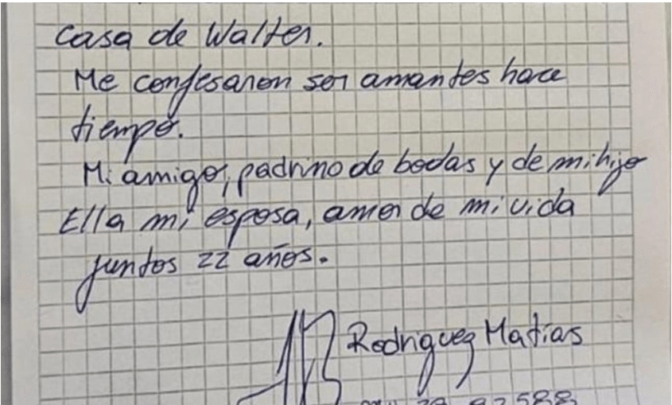 casa de Walter.
Me confesaron ser amantes hace
tiempo.
Mi amigo, padrino de bodas y de mi hijo
Ella mi esposa, amor de mi vida
juntos 22 años.
Rodriguez Matias